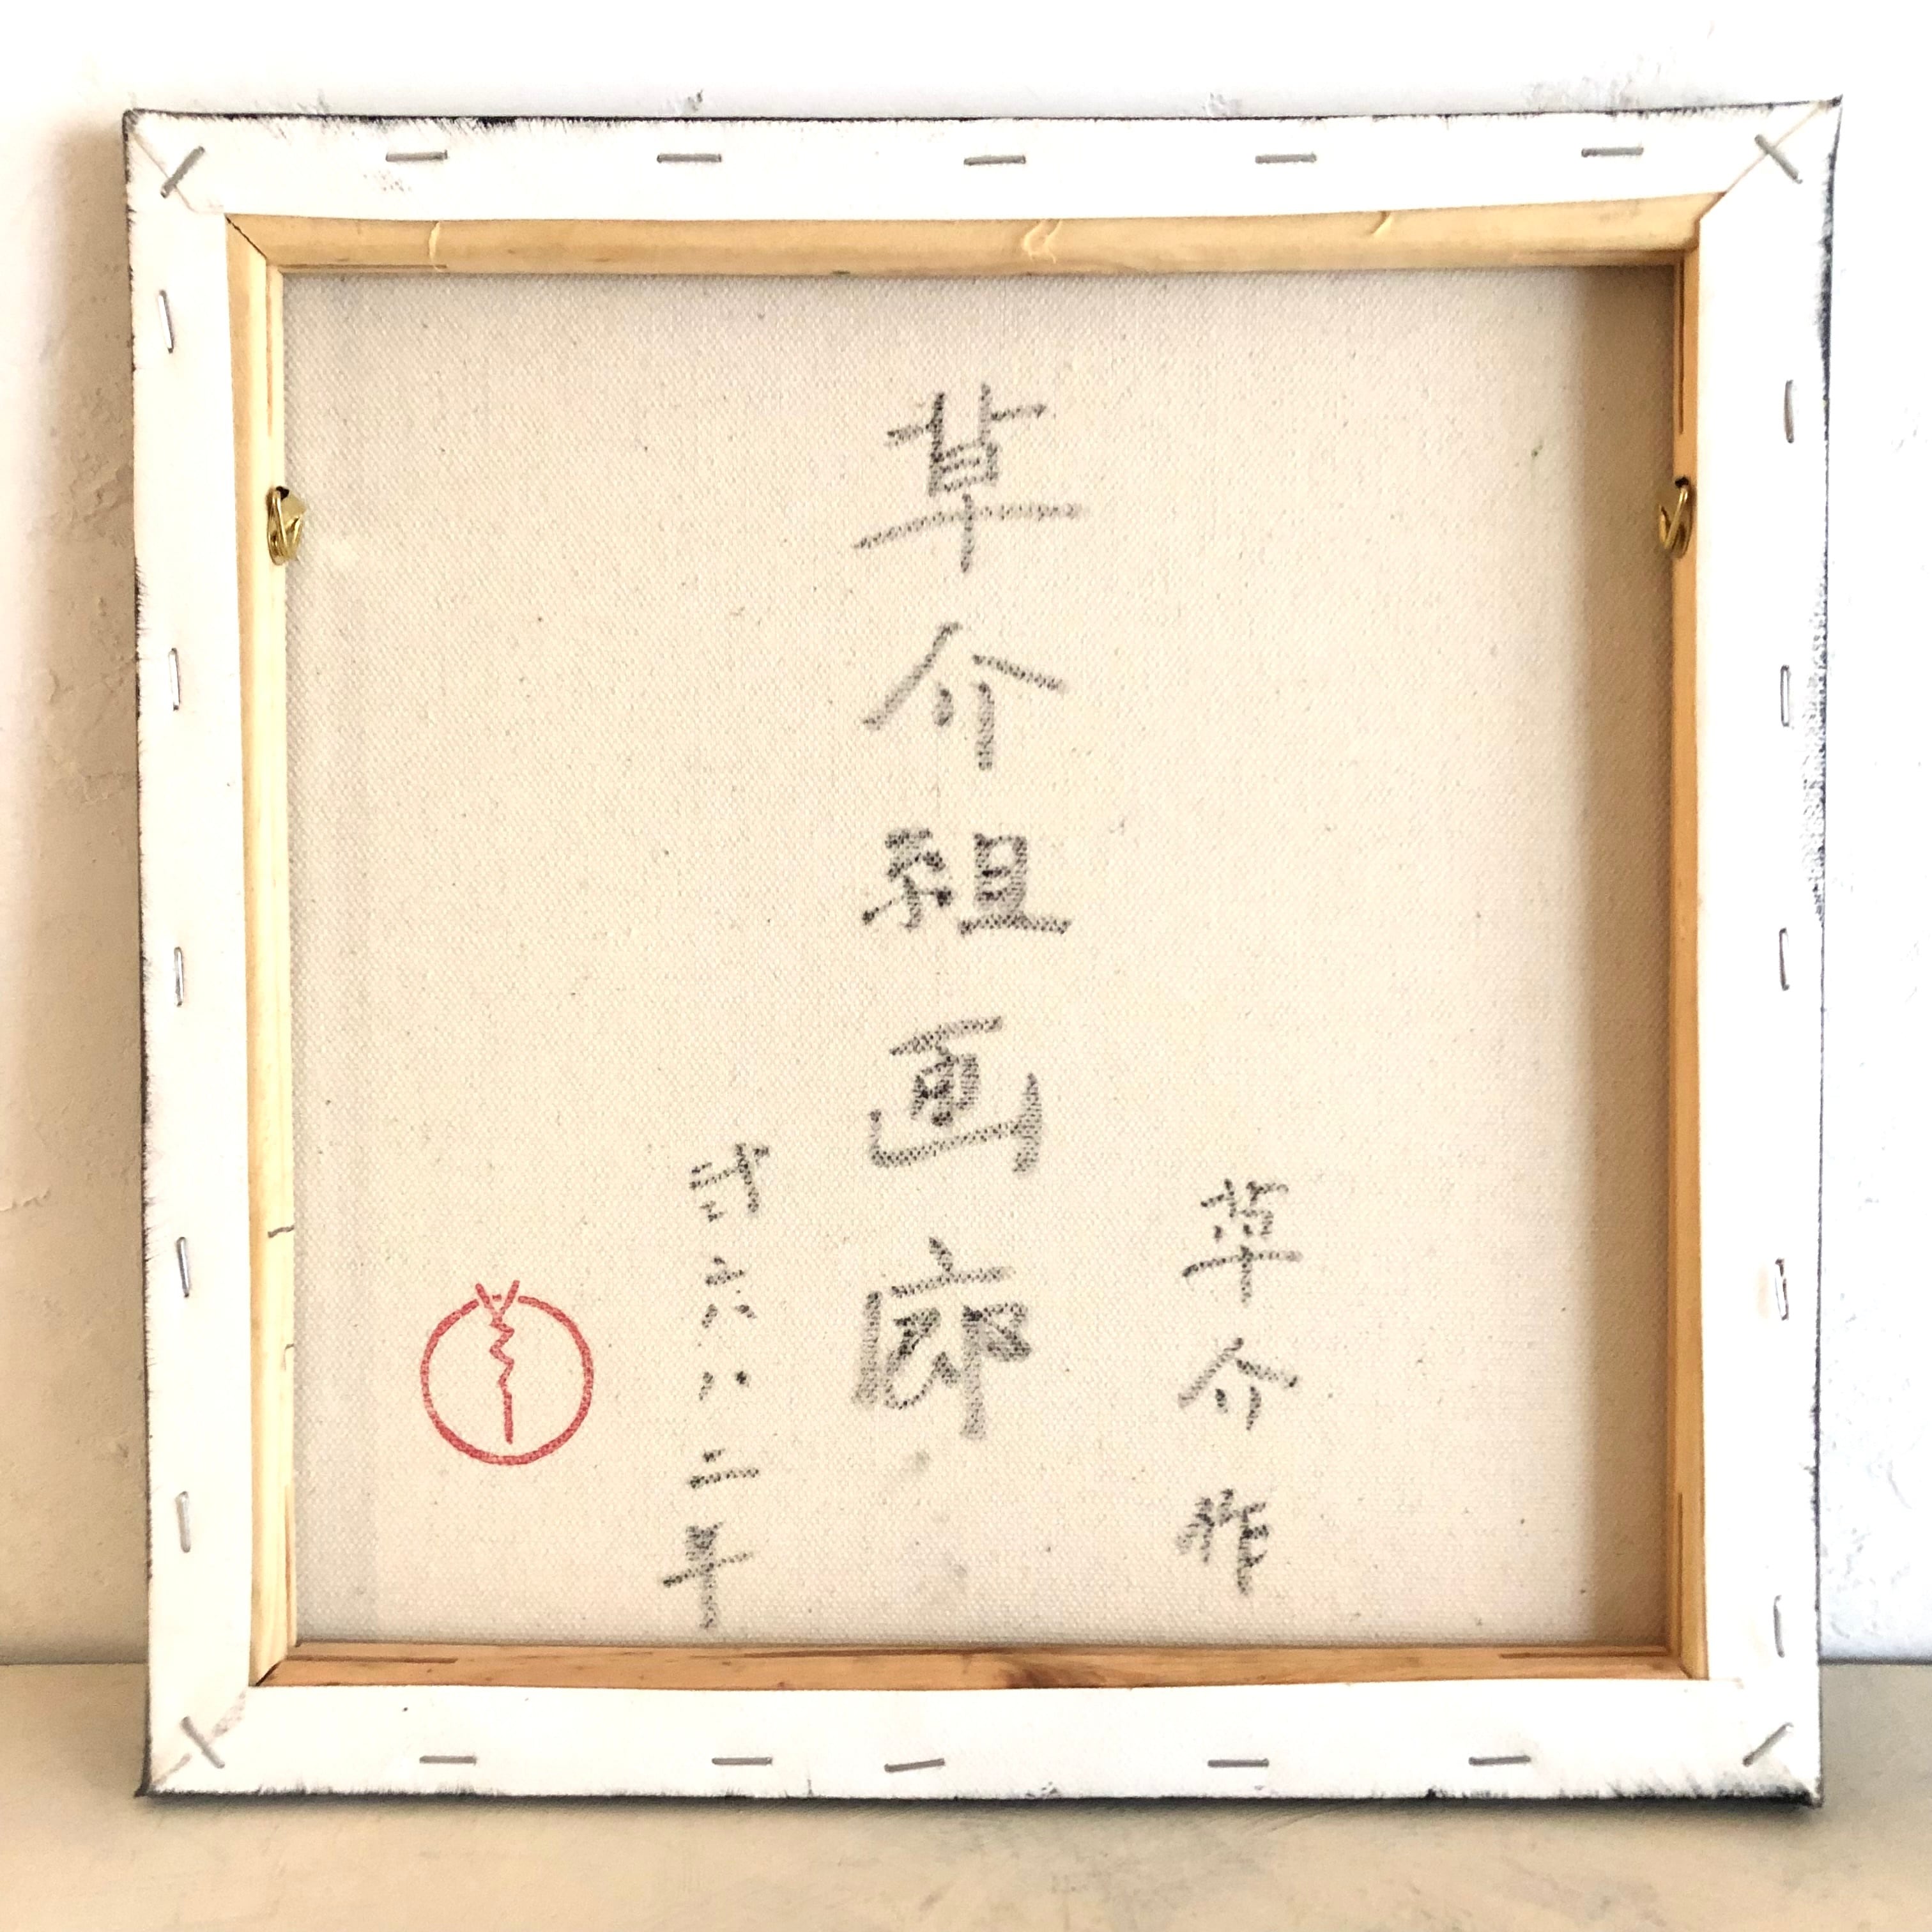 草介作
草介組画廊
弐六八二年